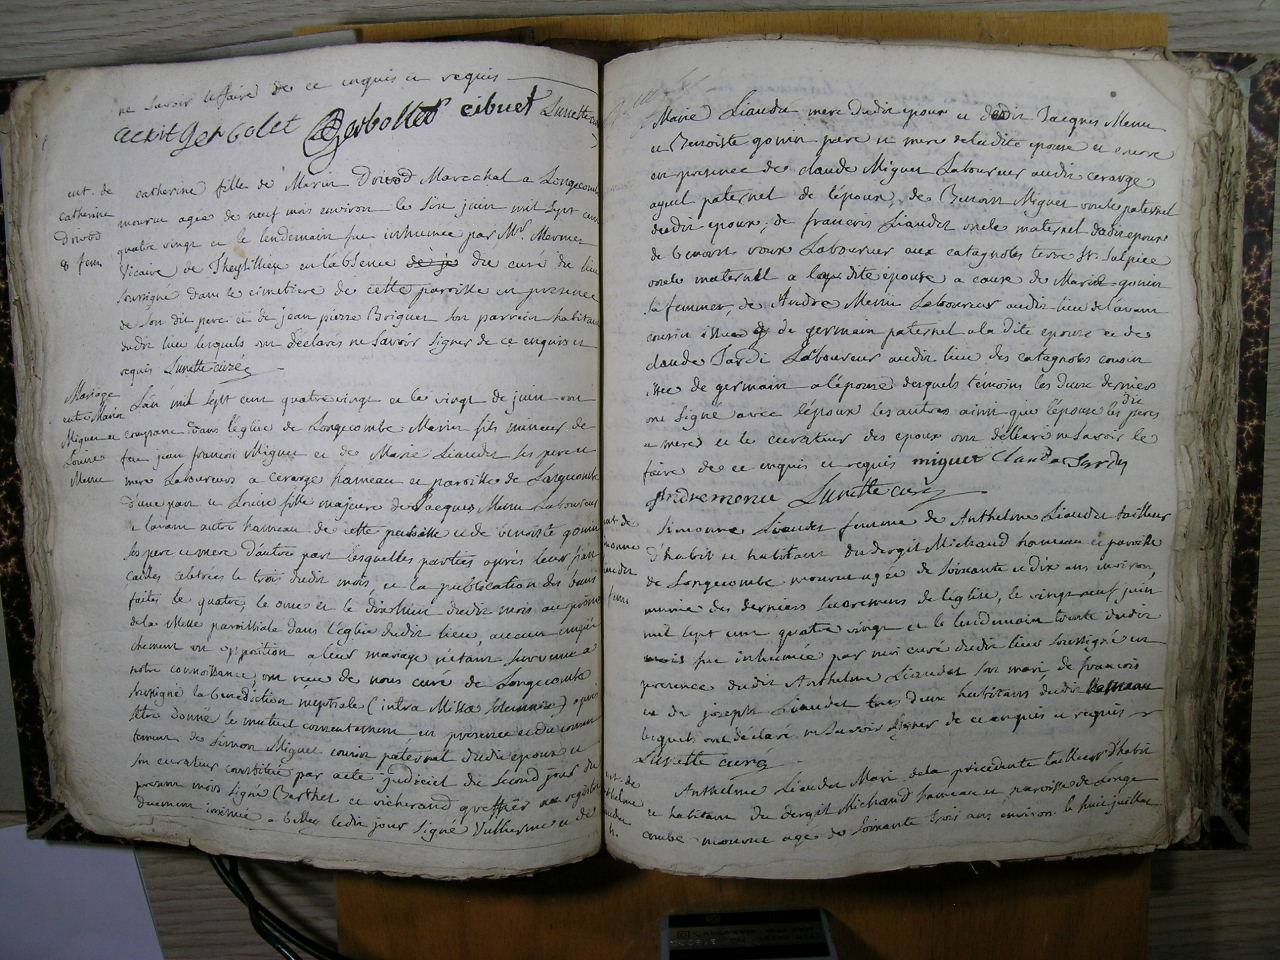 ne savoir le faire de ce enquis et requis
claude gerbolet Gerbollet cibuet Lunette curé
ent. de
catherine
Doirod
8 fem
catherine fille de Marin Doirod Marechal a Longecombe
mourut agee de neuf mois environ le six juin mil sept cent
quatre vingt et le lendemain fut inhumée par Mr. Mermet
Vicaire de Theysillieu en l'absence du curé du lieu
soussigné dans le cimetiere de cette paroisse en presence
de son dit pere et de jean pierre Briguet son parrain habitant
dudit lieu lesquels ont déclarés ne savoir signer de ce enquis et
requis Lunette curé
Mariage
entre Marin
Miguet et
Louise
Menu
L'an mil sept cent quatre vingt et le vingt de juin ont
comparu dans l'église de Longecombe Marin fils mineur de
feu jean francois Miguet et de Marie Liaudet ses pere et
mere Laboureurs a cerarge hameau et paroisse de Longecombe
d'une part et Louise fille majeure de Jacques Menu Laboureur
a lavant autre hameau de cette paroisse et de benoiste gonin
ses pere et mere d'autre part lesquelles parties après leurs fian
cailles celebrées le trois dudit mois, et la publication des bans
faites le quatre, le onze et le dixhuit dudit mois au prône
de la Messe paroissiale dans l'église dudit lieu, aucun empê
chement ou opposition a leur mariage n'étant survenue a
notre connoissance, ont recu de nous curé de Longecombe
soussigné la benediction nuptiale (intra Missæ solemnia) après
s'être donné le mutuel consentement, en presence et du consen
tement de Simon Miguet cousin paternel dudit epoux et
son curateur constitué par acte judiciel du second jour du
present mois signé Barthet et richerand greffier au registre
duement insinué a belley ledit jour signé Vuillerme et de
Marie Liaudet mere dudit epoux et dudit Jacques Menu
et Benoiste gonin pere et mere de ladite epouse et encore
en presence de claude Miguet Laboureur audit cerarge
ayeul paternel de l'epoux, de Benoit Miguet oncle paternel
dudit epoux, de francois Liaudet oncle maternel dudit epoux
de Laboureur aux catagnoles terre St. Sulpice
oncle maternel a laditte epouse a cause de Marie gonin
sa femme, de André Menu Laboureur audit lieu de lavant
cousin issu de germain paternel a la dite epouse et de
claude Jardi Laboureur audit lieu des catagnoles cousin
issu de germain a l'épouse desquels témoins les deux derniers
ont signé avec l'époux les autres ainsi que l'épouse les dits peres
et meres et le curateur des epoux ont déclaré ne savoir le
faire de ce enquis et requis miguet Clauda Jardy
Andre menu Lunette curé
ent. de
monne
audet
fem
Simonne Liaudet femme de Anthelme Liaudet tailleur
d'habit et habitant du dergit Michaud hameau et paroisse
de Longecombe mourut agée de soixante et dix ans environ,
munie des derniers sacremens de l'église, le vingt neuf juin
mil sept cent quatre vingt et le lendemain trente dudit
mois fut inhumée par moi curé dudit lieu soussigné en
presence dudit Anthelme Liaudet son mari, de francois
et de joseph Liaudet tous deux habitans dudit hameau
lesquels ont declaré ne savoir signer de ce enquis et requis
Lunette curé
ent. de
thelme
audet
h.
Anthelme Liaudet Mari de la précedente tailleur d'habit
et habitant du dergit Michaud hameau et paroisse de Longe
combe mourut agé de soixante trois ans environ le huit juillet